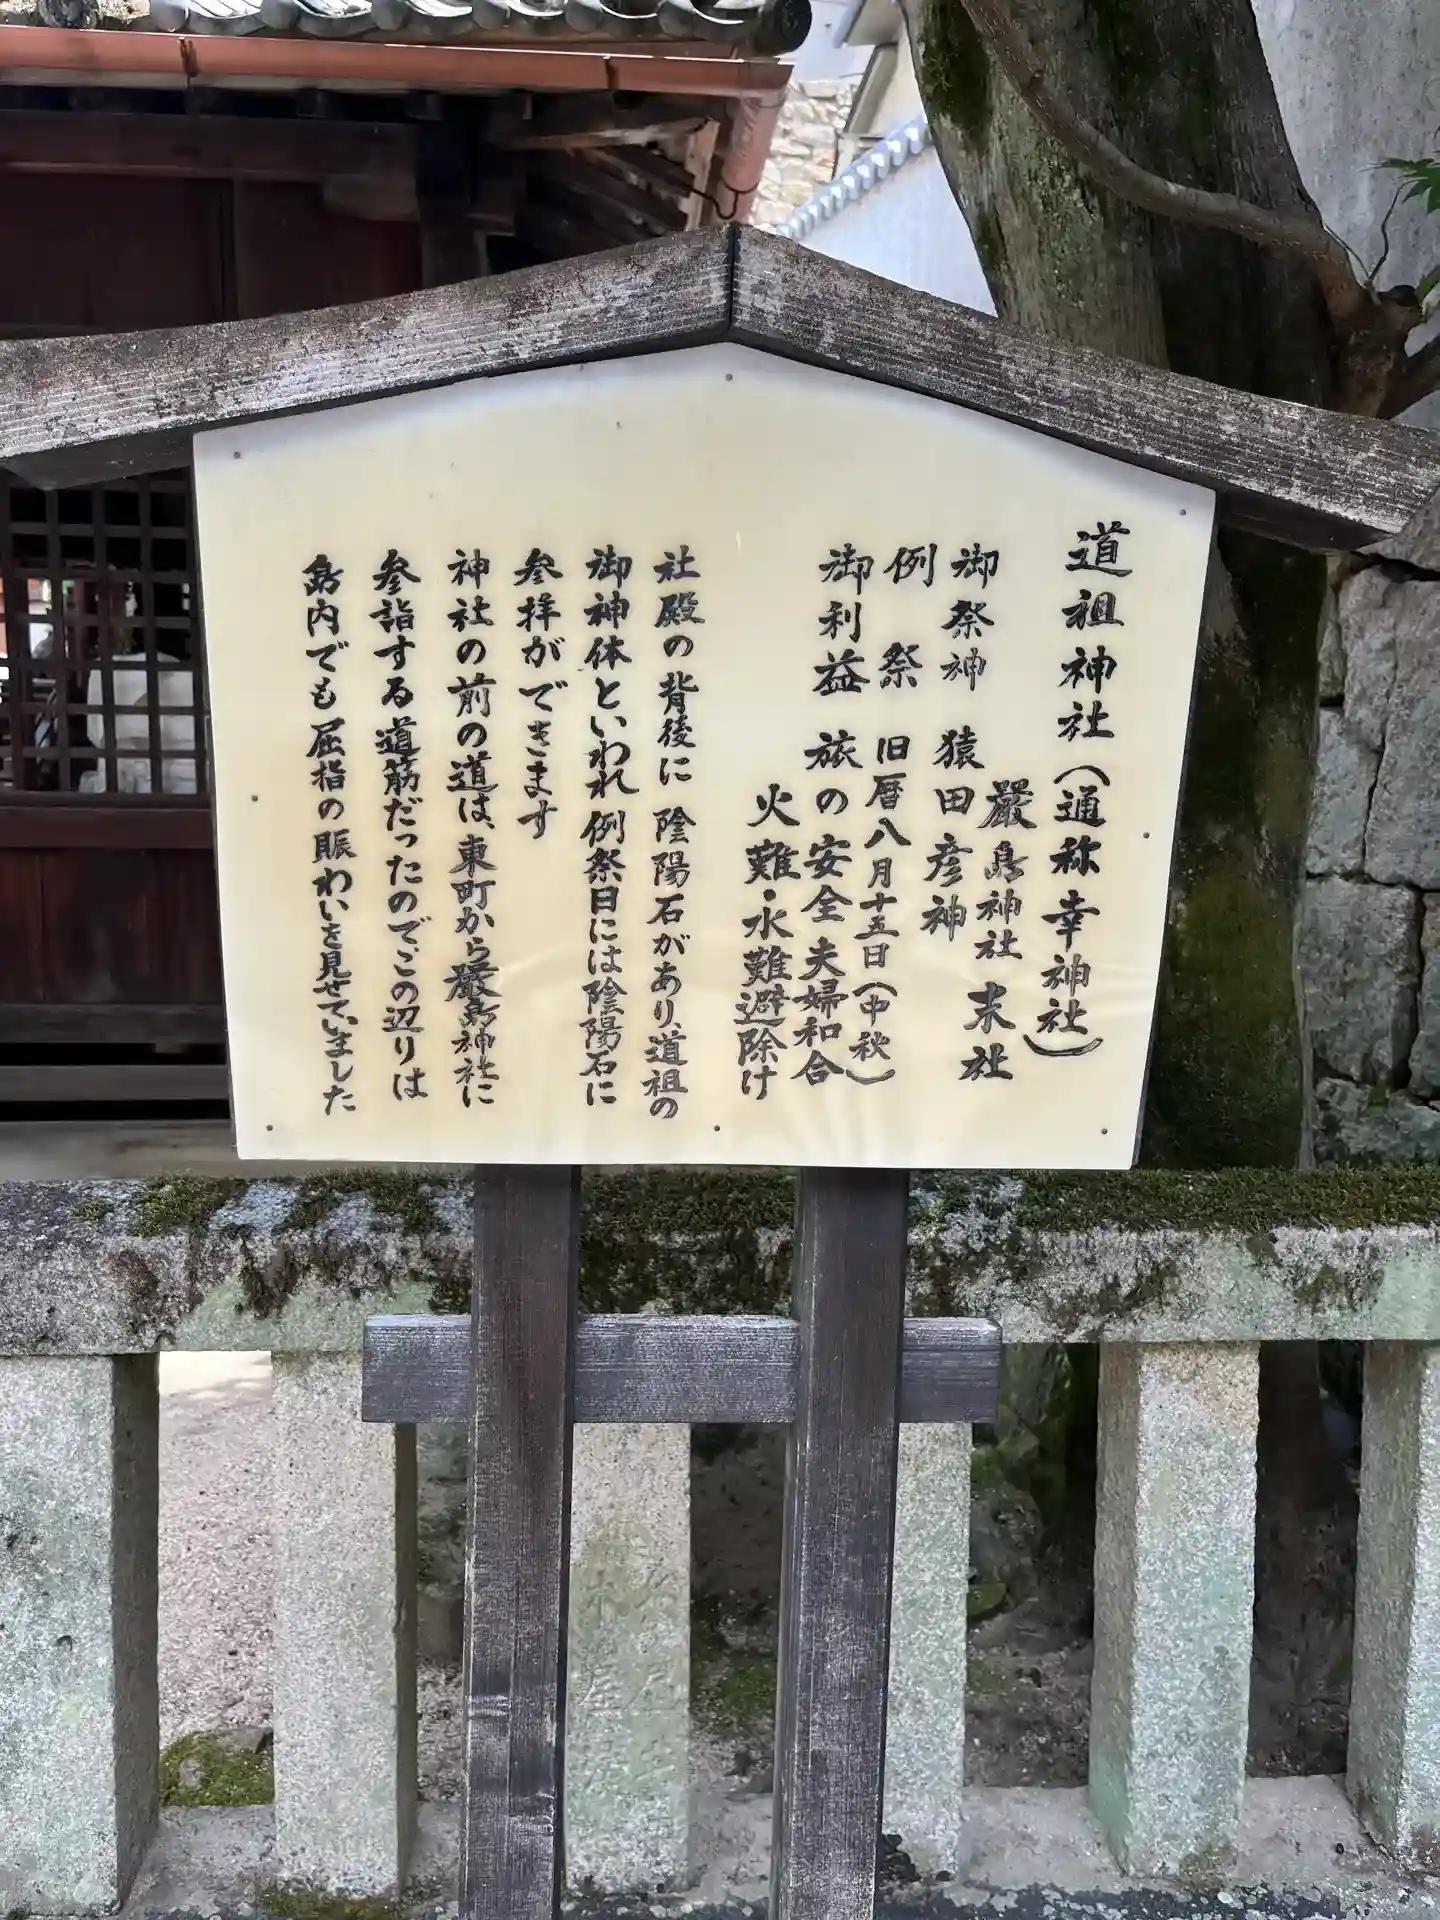 道祖神社（通称幸神社）
嚴島神社 末社
御祭神 猿田彦神
例祭 旧暦八月十五日（中秋）
御利益 旅の安全 夫婦和合
火難・水難避除け
社殿の背後に陰陽石があり、道祖の
御神体といわれ例祭日には陰陽石に
参拝ができます
神社の前の道は、東町から嚴島神社に
参詣する道筋だったのでこの辺りは
島内でも屈指の賑わいを見せていました